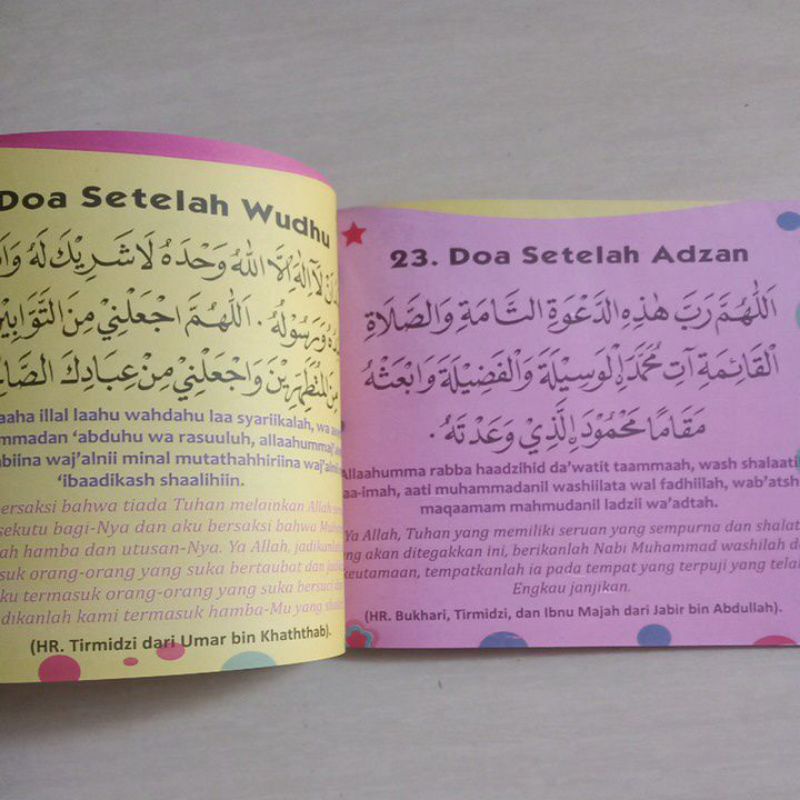 Doa Setelah Wudhu
لَآاِلٰهَ اِلَّا اللّٰهُ وَحْدَهُ لَا شَرِيْكَ لَهُ
وَرَسُوْلُهُ . اَللّٰهُمَّ اجْعَلْنِيْ مِنَ التَّوَّابِيْنَ
مِنَ الْمُتَطَهِّرِيْنَ وَاجْعَلْنِيْ مِنْ عِبَادِكَ
illal laahu wahdahu laa syariikalah, wa
'abduhu wa rasuuluh,
waj'alnii minal mutathahhiriina
'ibaadikash shaalihiin.
bersaksi bahwa tiada Tuhan melainkan Allah
bagi-Nya dan aku bersaksi bahwa
hamba dan utusan-Nya. Ya Allah,
orang-orang yang suka bertaubat dan
termasuk orang-orang yang suka
kami termasuk hamba-Mu yang
(HR. Tirmidzi dari Umar bin Khaththab).
23. Doa Setelah Adzan
اَللّٰهُمَّ رَبَّ هٰذِهِ الدَّعْوَةِ التَّامَةِ وَالصَّلَاةِ
الْقَائِمَةِ آتِ مُحَمَّدَاِ الْوَسِيْلَةَ وَالْفَضِيْلَةَ وَابْعَثْهُ
مَقَامًا مَحْمُوْدَاِ الَّذِيْ وَعَدْتَهُ .
Allaahumma rabba haadzihid da'watit taammaah, wash shalaati
aati muhammadanil washiilata wal fadhiilah, wab'atsh
maqaamam mahmudanil ladzii wa'adtah.
Ya Allah, Tuhan yang memiliki seruan yang sempurna dan shalat
akan ditegakkan ini, berikanlah Nabi Muhammad washilah
tempatkanlah ia pada tempat yang terpuji yang
Engkau janjikan.
(HR. Bukhari, Tirmidzi, dan Ibnu Majah dari Jabir bin Abdullah).